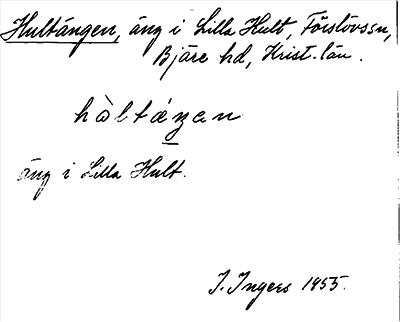 Hultängen, äng i Lilla Hult, Förslövssn,
Bjäre hd, Krist. län.
hàltáŋan
äng i Lilla Hult.
I. Ingers 1955.